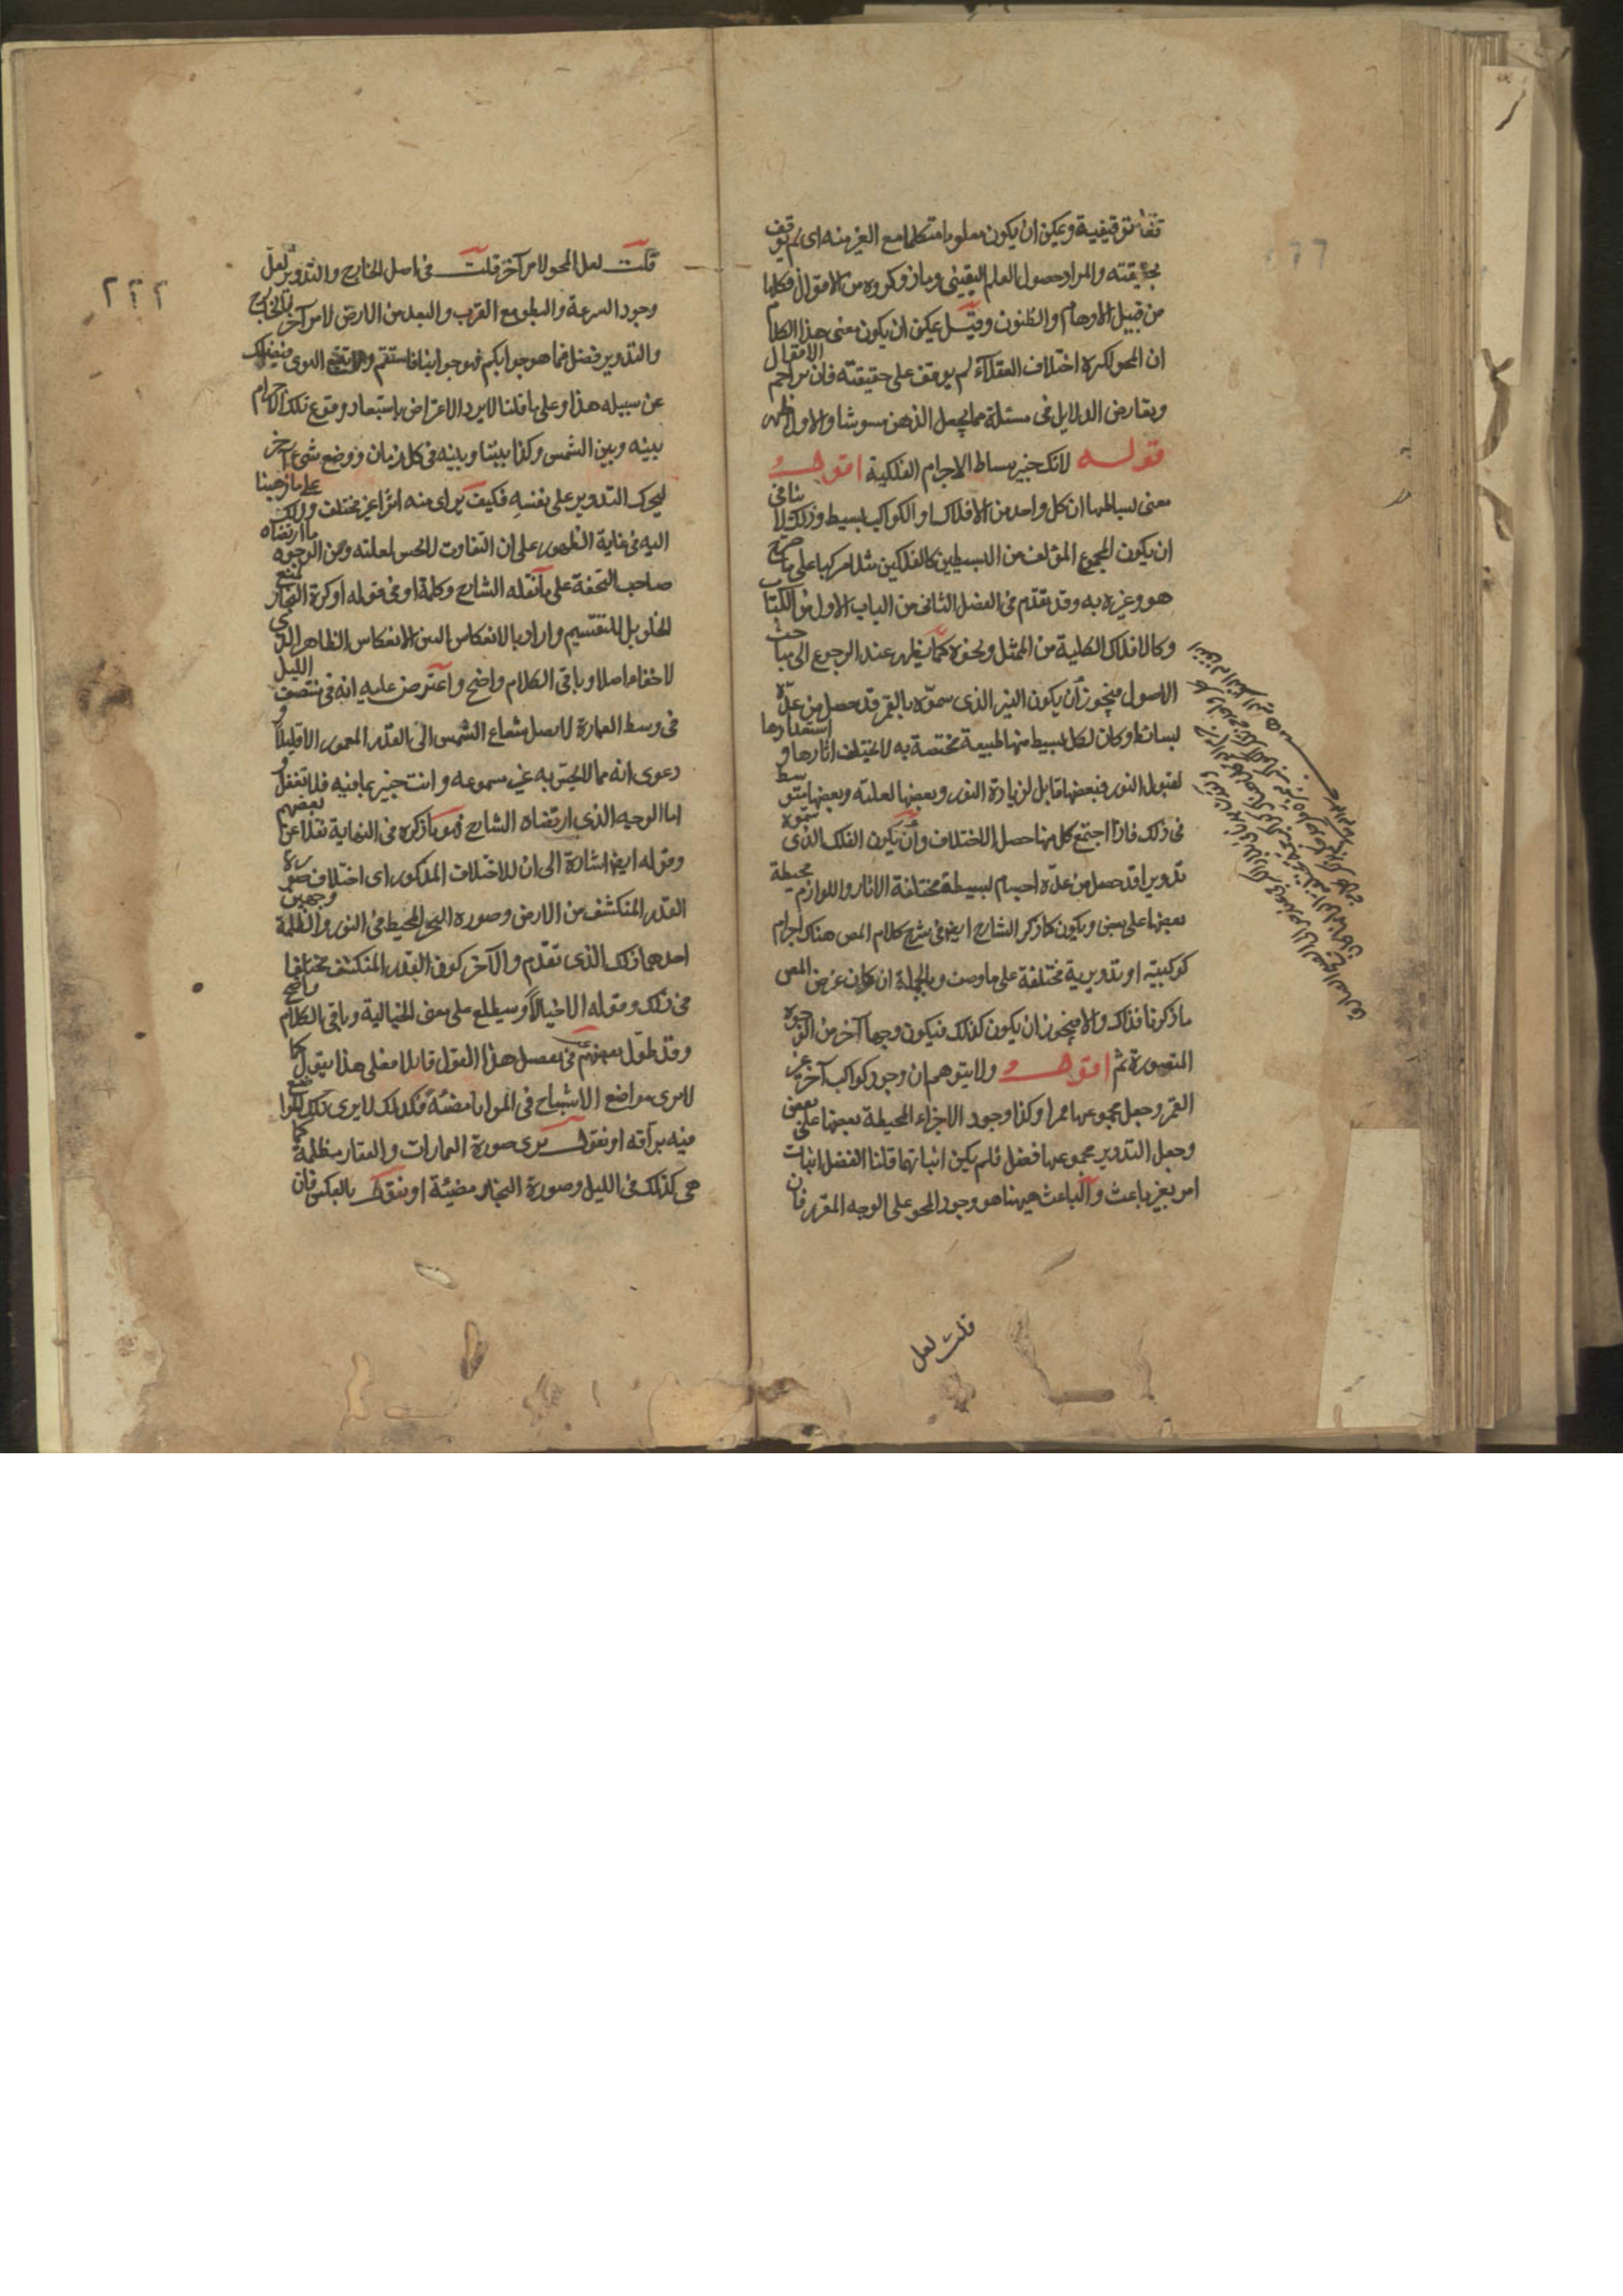 تفا توقيفية ويمكن ان يكون معلوما متكلما مع الغير منه اى لم يوقف
بحقيقته والمراد حصول العلم اليقينى وما ذكروه من الاقوال فكلها
من قبيل الاوهام والظنون وقيل يمكن ان يكون معنى هذا الكلام
ان المحو لكثرة اختلاف العقلاء لم يوقف على حقيقته فان تزاحم الاقوال
وتعارض الدلايل فى مسئلة مما يجعل الذهن مشوشا والاول اظهر
قوله لانك خبير ببساطة الاجرام الفلكية اقول
معنى بساطتها ان كل واحد من الافلاك او الكواكب بسيط وذلك لا ينافى
ان يكون المجموع المؤلف من البسيطين كالفلكين مثلا مركبا على ما صرح
هو وغيره به وقد تقدم فى الفصل الثانى من الباب الاول من الكتاب
وكالافلاك الكلية من الممثل ونحوه كما يظهر عند الرجوع الى مباحث
الاصول فيجوز أن يكون النير الذى سموه بالقمر قد حصل من عدة
بسائط وكان لكل بسيط منها طبيعة مختصة به لا يختلف اثارها واستعدادها
لقبول النور فبعضها قابل لزيادة النور وبعضها لعلته وبعضها متوسط
فى ذلك فاذا اجتمع كل منها حصل الاختلاف وأن يكون الفلك الذى سموه
تدويرا قد حصل من عدة اجسام بسيطة مختلفة الاثار واللوازم محيطة
بعضها على بعض ويكون كما ذكر الشارح ايضا فى شرح كلام المص هناك اجرام
كوكبية او تدويرية مختلفة على ما وصف وبالجملة ان كان غرض المص
ما ذكرنا فذاك والا فيجوز ان يكون كذلك فيكون وجها آخر من الوجوه
المتصورة ثم اقول ولا يتوهم ان وجود كواكب آخر غير
القمر وجعل مجموعها قمرا وكذا وجود الاجزاء المحيطة بعضها على بعض
وجعل التدوير مجموعها فضل فلم يكن اثباتها قلنا الفضل اثبات
امر بغير باعث والباعث هيهنا هو وجود المحو على الوجه المقرر فان
قلت لعل
٢٢٢
قلت لعل المحو لامر آخر قلت فى اصل الخارج والتدوير لعل
وجود السرعة والبطوء مع القرب والبعد من الارض لامر آخر فالخارج
والتدوير فضل فما هو جوابكم فهو جوابنا فاستقم ولا تتبع الهوى فيضلك
عن سبيله هذا وعلى ما قلنا لا يرد الاعتراض باستبعاد وقوع تلك الاجرام
بينه وبين الشمس وكذا بيننا وبينه فى كل زمان ووضع شىء آخر
ليحرك التدوير على نفسه فكيف يرى منه اثرا غير مختلف وذلك على ما ذهبنا
اليه فى غاية الظهور على ان التفاوت لا يحس لعلته ومن الوجوه ما ارتضاه
صاحب التحفة على ما نقله الشارح وكلمة او فى قوله او كرة البخار لمنع
الخلو بل للتقسيم واراد بالانعكاس البين الانعكاس الظاهر الذى
لا خفاء اصلا وباقى الكلام واضح واعترض عليه انه فى منتصف الليل
فى وسط العمارة لا يصل شعاع الشمس الى القدر المعمور الا قليلا و
دعوى انه مما لا يحس به غير مسموعه وانت خبير بما فيه فلا تغفل و
اما الوجيه الذى ارتضاه الشارح فهو ما ذكره فى النهاية نقلا عن بعضهم
وقوله ايضا اشارة الى ان للاختلاف المذكور اى اختلاف صورة
القدر المنكشف من الارض وصورة البحر المحيط فى النور والظلمة وجهين
احدهما ذلك الذى تقدم والآخر كون القدر المنكشف مختلفا
فى ذلك وقوله الا خيالا وسيطلع على معنى الخيالية وباقى الكلام واضح
وقد طول بعضهم فى تفصيل هذا القول قايلا فعلى هذا يقول كما
لا يرى مواضع الاشباح فى المرايا مضئة فكذلك لا يرى تلك المواضع
فيه براقه او نقول يرى صورة العمارات والقفار مظلمة كما
هى كذلك فى الليل وصورة البحار مضيئة او نقول بالعكس فان